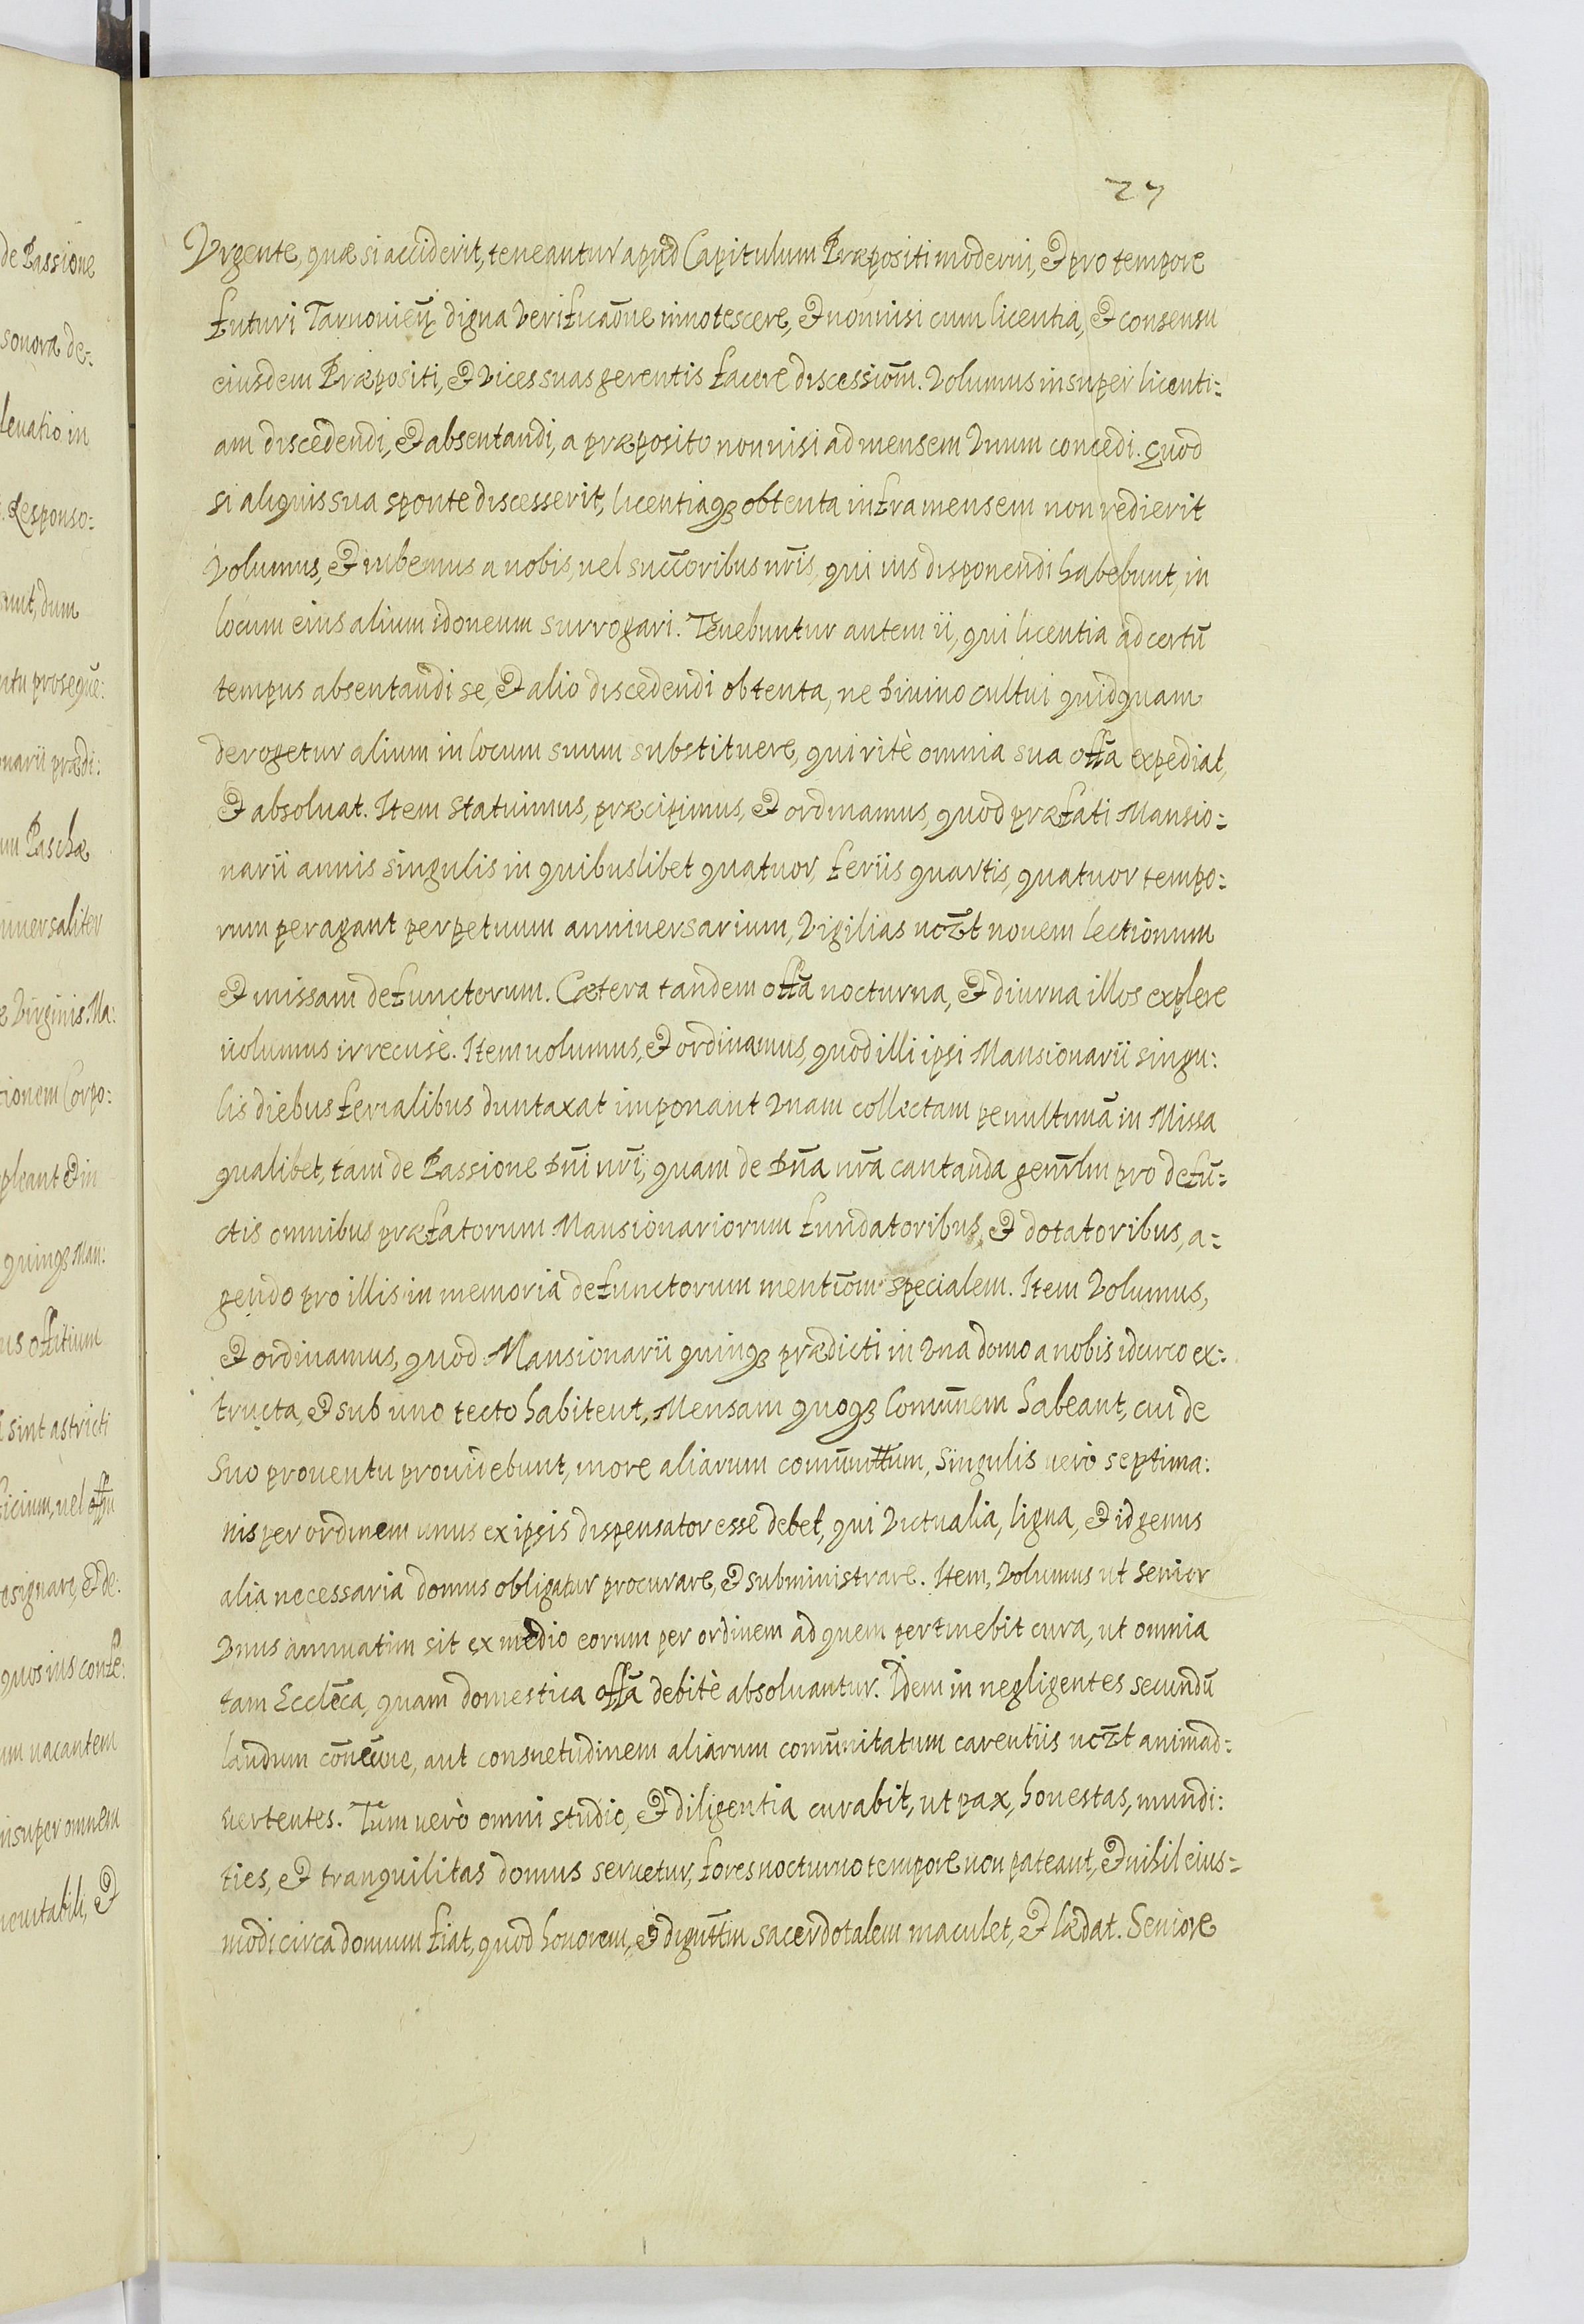 27
Vrgente, quæ si acciderit, teneantur apud Capitulum Præpositi moderni, & pro tempore
futuri Tarnovieñ digna verificãone innotescere, & nonnisi cum licentia, & consensu
eiusdem Præpositi, & vices suas gerentis facere discessioñm. Volumus insuper licenti=
am discedendi, & absentandi, a præposito nonnisi ad mensem vnum concedi. Quod
si aliquis sua sponte discesserit, licentiaqz obtenta infra mensem non redierit
volumus, & iubemus a nobis, uel succ̃oribus nr̃is, qui ius disponendi habebunt, in
locum eius alium idoneum surrogari. Tenebuntur autem ii, qui licentia ad certũ
tempus absentandi se, & alio discedendi obtenta, ne Diuino cultui quidquam
derogetur alium in locum suum substituere, qui ritè omnia sua offã expediat,
& absoluat. Item statuimus, præcipimus, & ordinamus, quod præfati Mansio=
narii annis singulis in quibuslibet quatuor, feriis quartis, quatuor tempo:
rum peragant perpetuum anniuersarium, Vigilias uczt̃ nouem lectionum
& missam defunctorum. Cætera tandem offã nocturna, & diurna illos explere
uolumus irrecusè. Item uolumus, & ordinamus, quod illi ipsi Mansionarii singu:
lis diebus ferialibus duntaxat imponant vnam collectam penultimã in Missa
qualibet, tam de Passione Dñi nr̃i, quam de Dñã nr̃a cantanda genr̃lm pro defũ=
ctis omnibus præfatorum Mansionariorum fundatoribus, & dotatoribus, a=
gendo pro illis in memoria defunctorum mentioñm specialem. Item Volumus,
& ordinamus, quod Mansionarii quinqz prædicti in vna domo a nobis idcirco ex=
tructa, & sub uno tecto habitent, Mensam quoqz Comũnem habeant, cui de
suo prouentu prouidebunt, more aliarum comũnttum, singulis verò septima:
nis per ordinem unus ex ipsis dispensator esse debet, qui victualia, ligna, & id genus
alia necessaria domus obligatur procurare, & subministrare. Item, volumus ut senior
vnus annuatim sit ex medio eorum per ordinem ad quem pertinebit cura, ut omnia
tam Ecclẽca, quam domestica offã debitè absoluantur. Idem in negligentes secundũ
laudum cõñeũne, aut consuetudinem aliarum comũnitatum carentiis uczt̃ animad=
uertentes. Tum uerò omni studio, & diligentia curabit, ut pax, honestas, mundi:
ties, & tranquilitas domus seruetur, fores nocturno tempore non pateant, & nihil eius=
modi circa domum fiat, quod honorem, & dignttm̃ sacerdotalem maculet, & lædat. Seniore